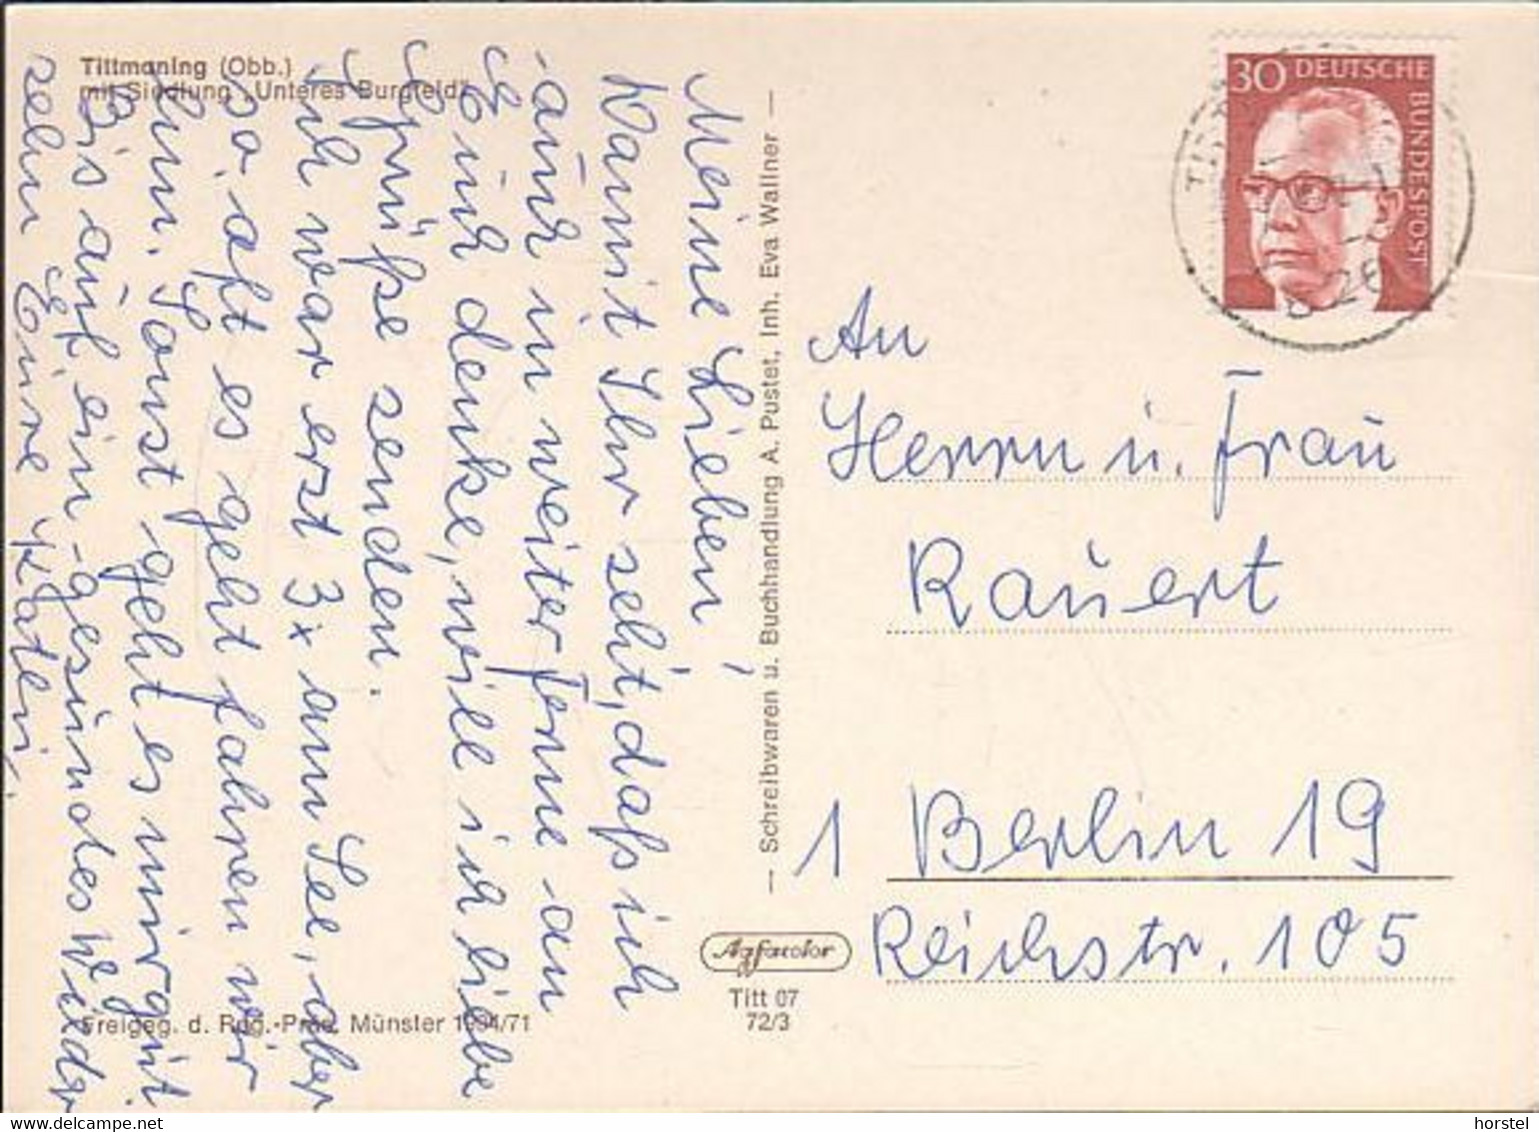 Tittmoning (Obb.)
mit Siedlung „Unteres Burgfeld"
Meine Lieben!
Damit Ihr seht, daß ich
auch in weiter Ferne an
Euch denke, will ich liebe
Grüße senden.
Ich war erst 3x am See, aber
so oft es geht fahren wir
hin. Sonst geht es mir gut.
Bis auf ein gesundes Wieder
sehn Eure Kathi.
Freigeg. d. Reg.-Präs. Münster 1994/71
— Schreibwaren u. Buchhandlung A. Pustet, Inh. Eva Wallner —
Agfacolor
Titt 07
72/3
30 DEUTSCHE
BUNDESPOST
An
Herrn u. Frau
Rauert
1 Berlin 19
Reichstr. 105
horstel